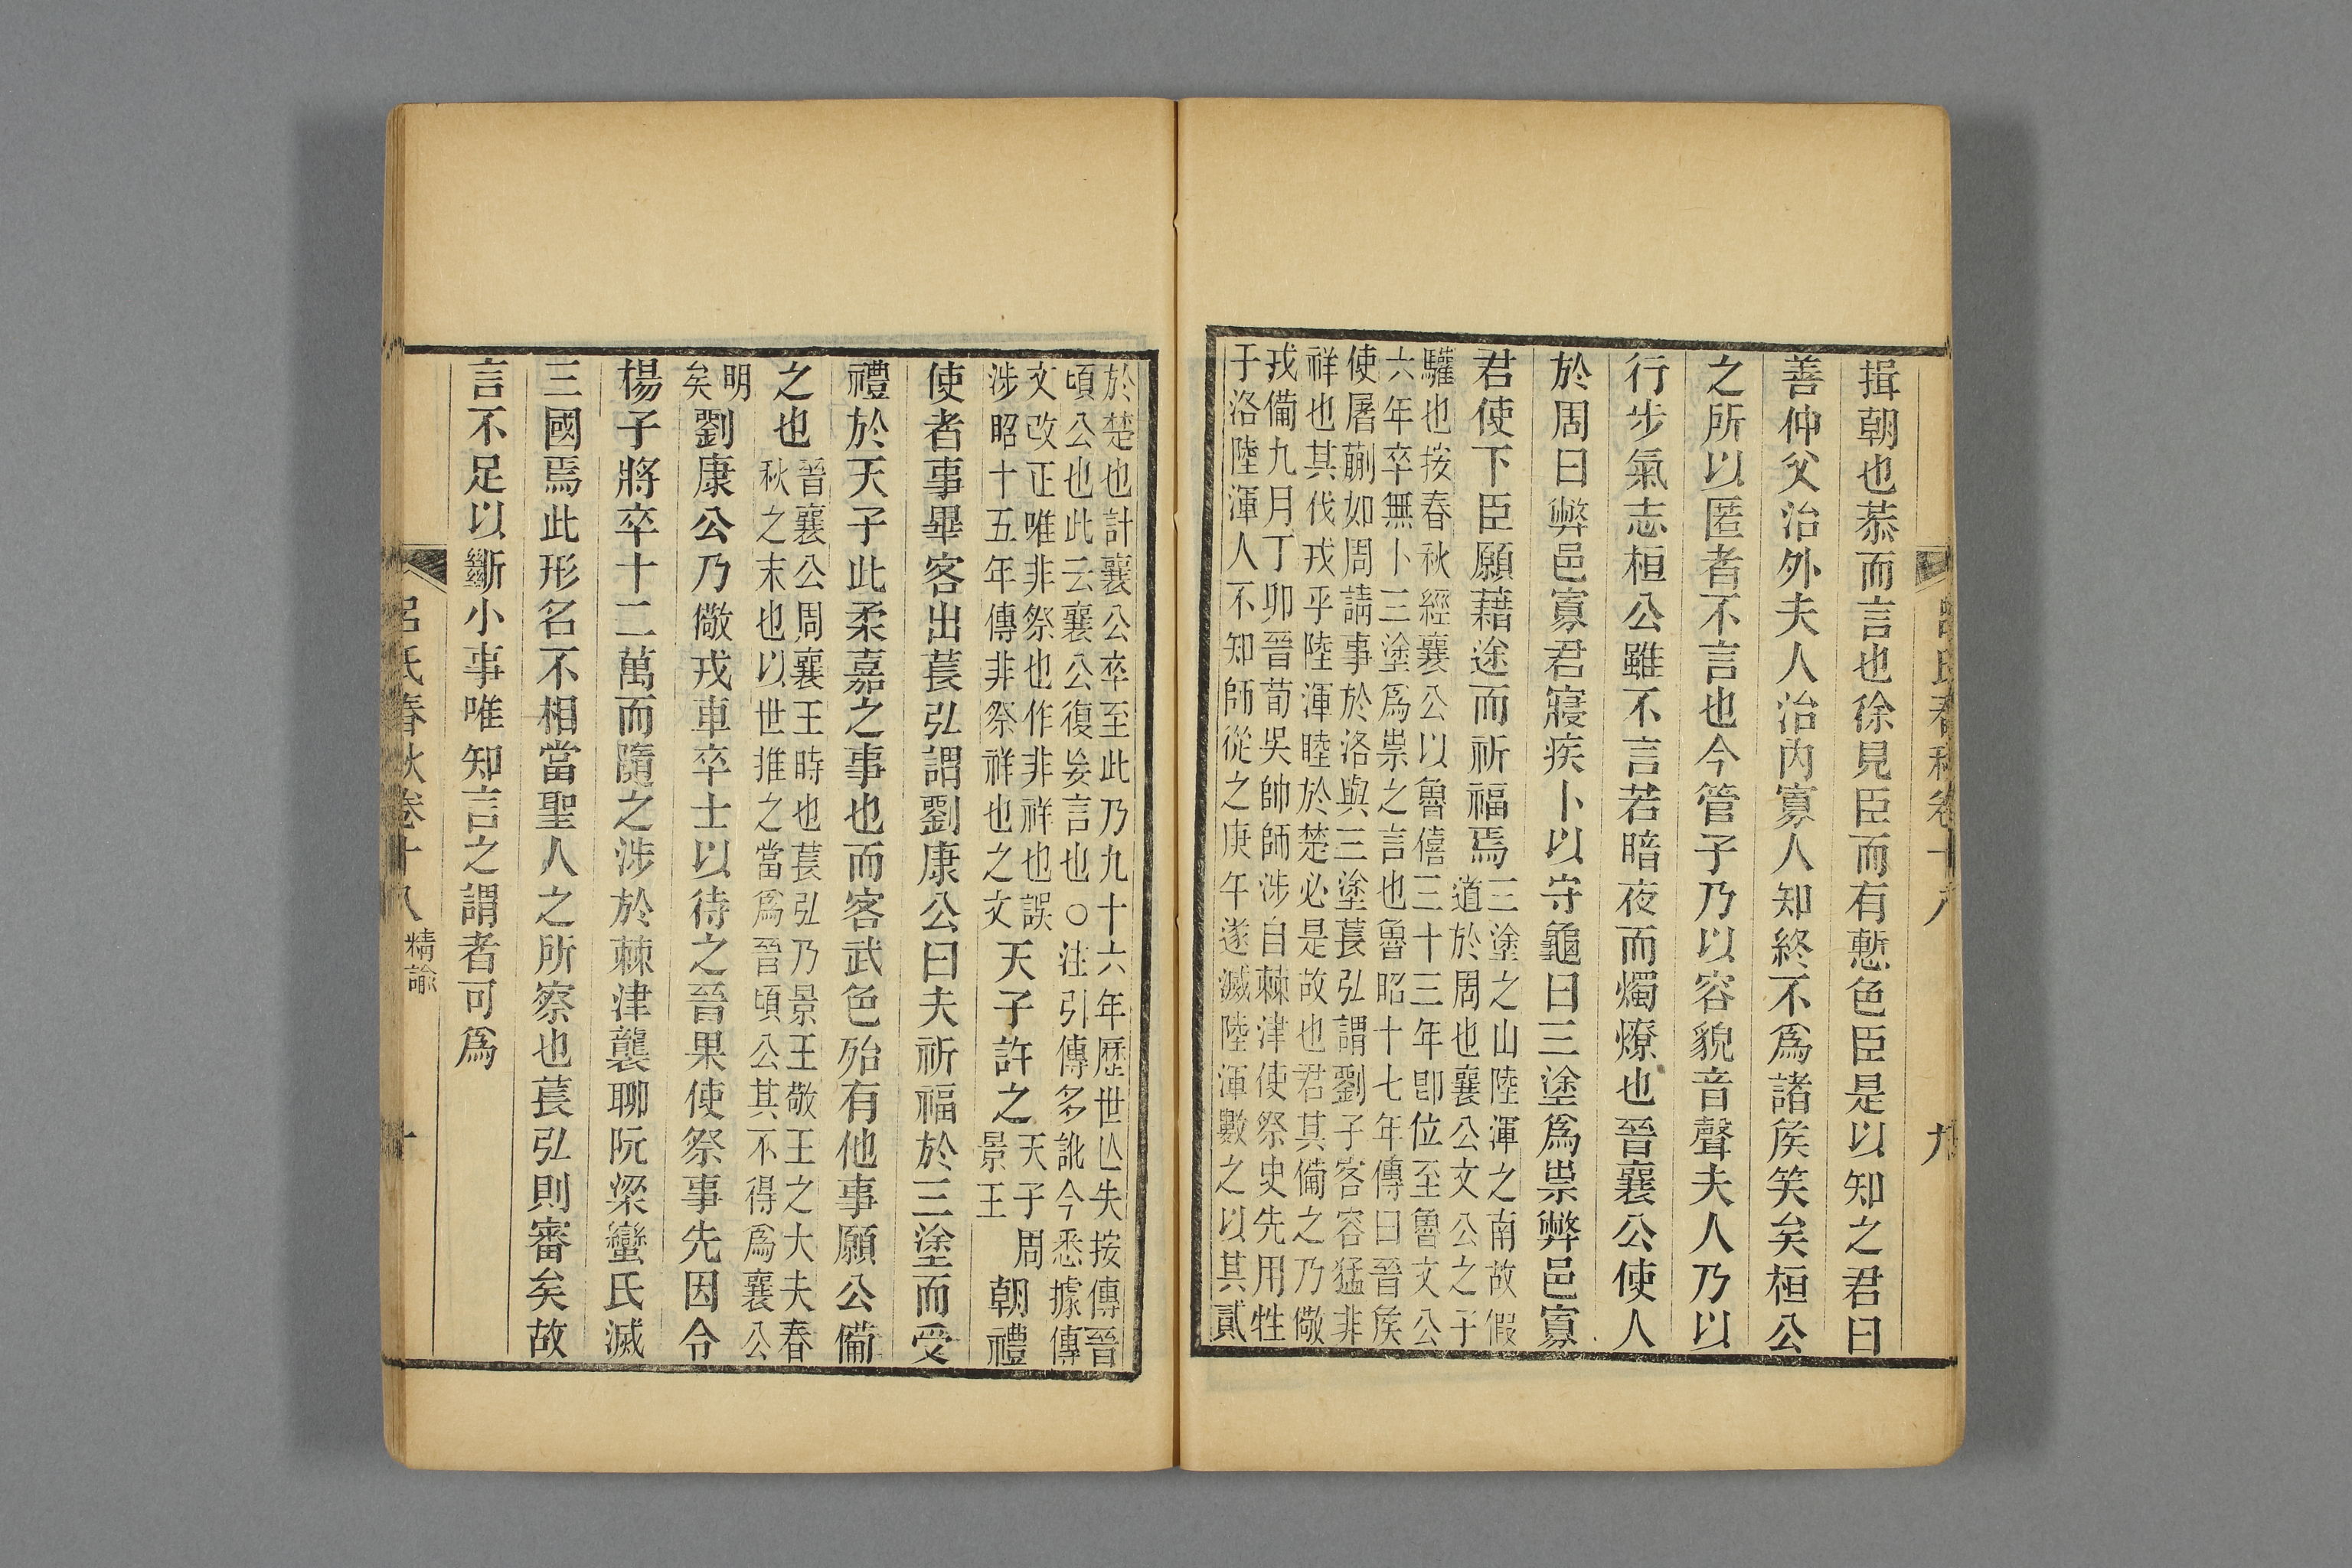 揖朝也恭而言也徐見臣而有慙色臣是以知之君曰
善仲父治外夫人治內寡人知終不爲諸矦笑矣桓公
之所以匿者不言也今管子乃以容貌音聲夫人乃以
行步氣志桓公雖不言若暗夜而燭燎也晉襄公使人
於周曰弊邑寡君寢疾卜以守龜曰三塗爲祟弊邑寡
君使下臣願藉途而祈福焉
三塗之山陸渾之南故假
道於周也襄公文公之子
驩也按春秋經襄公以魯僖三十三年卽位至魯文公
六年卒無卜三塗爲祟之言也魯昭十七年傳曰晉矦
使屠蒯如周請事於洛與三塗萇弘謂劉子客容猛非
祥也其伐戎乎陸渾睦於楚必是故也君其備之乃儆
戎備九月丁卯晉荀吳帥師涉自棘津使祭史先用牲
于洛陸渾人不知師從之庚午遂滅陸渾數之以其貳
於楚也計襄公卒至此乃九十六年歷世亾失按傳晉
頃公也此云襄公復妄言也○注引傳多訛今悉據傳
文改正唯非祭也作非祥也誤
涉昭十五年傳非祭祥也之文
天子許之
天子周
景王
朝禮
使者事畢客出萇弘謂劉康公曰夫祈福於三塗而受
禮於天子此柔嘉之事也而客武色殆有他事願公備
之也
晉襄公周襄王時也萇弘乃景王敬王之大夫春
秋之末也以世推之當爲晉頃公其不得爲襄公
明
矣
劉康公乃儆戎車卒士以待之晉果使祭事先因令
楊子將卒十二萬而隨之涉於棘津襲聊阮梁蠻氏滅
三國焉此形名不相當聖人之所察也萇弘則審矣故
言不足以斷小事唯知言之謂者可爲
呂氏春秋卷十八
精諭
十